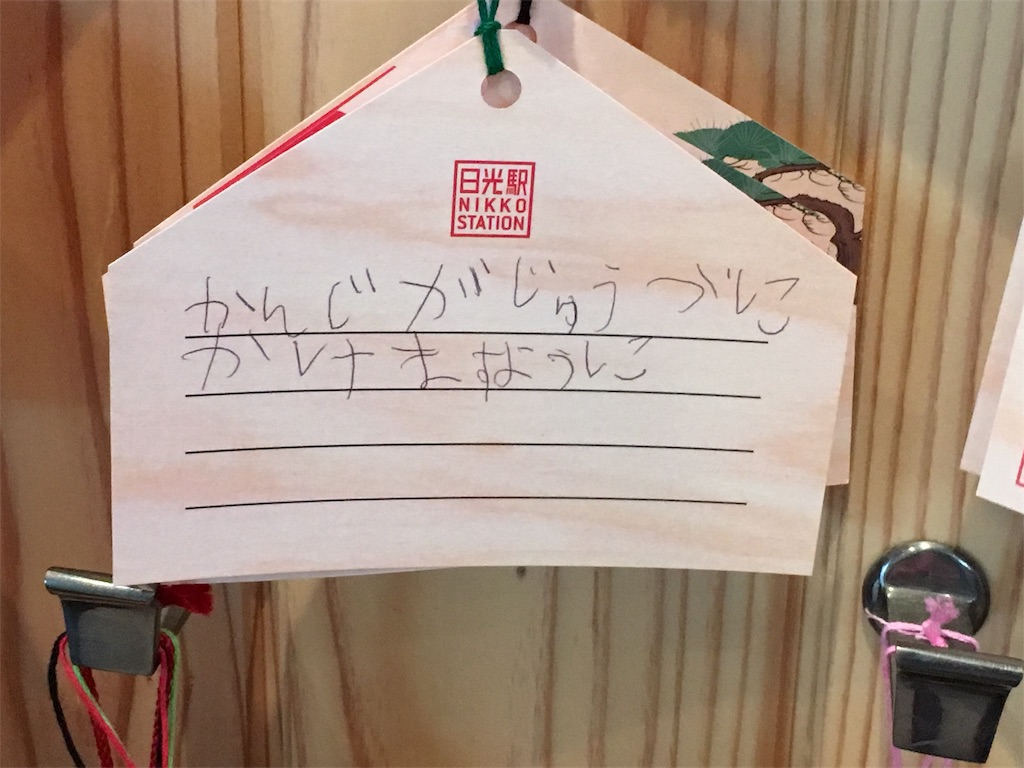 日光駅
NIKKO
STATION
かんじがじゅうづに
かけますように